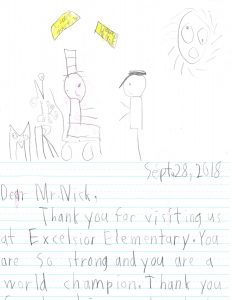 MR
Sept.28, 2018
Dear Mr.Nick,
Thank you for visiting us
at Excelsior Elementary. You
are so strong and you are a
world champion. Thank you